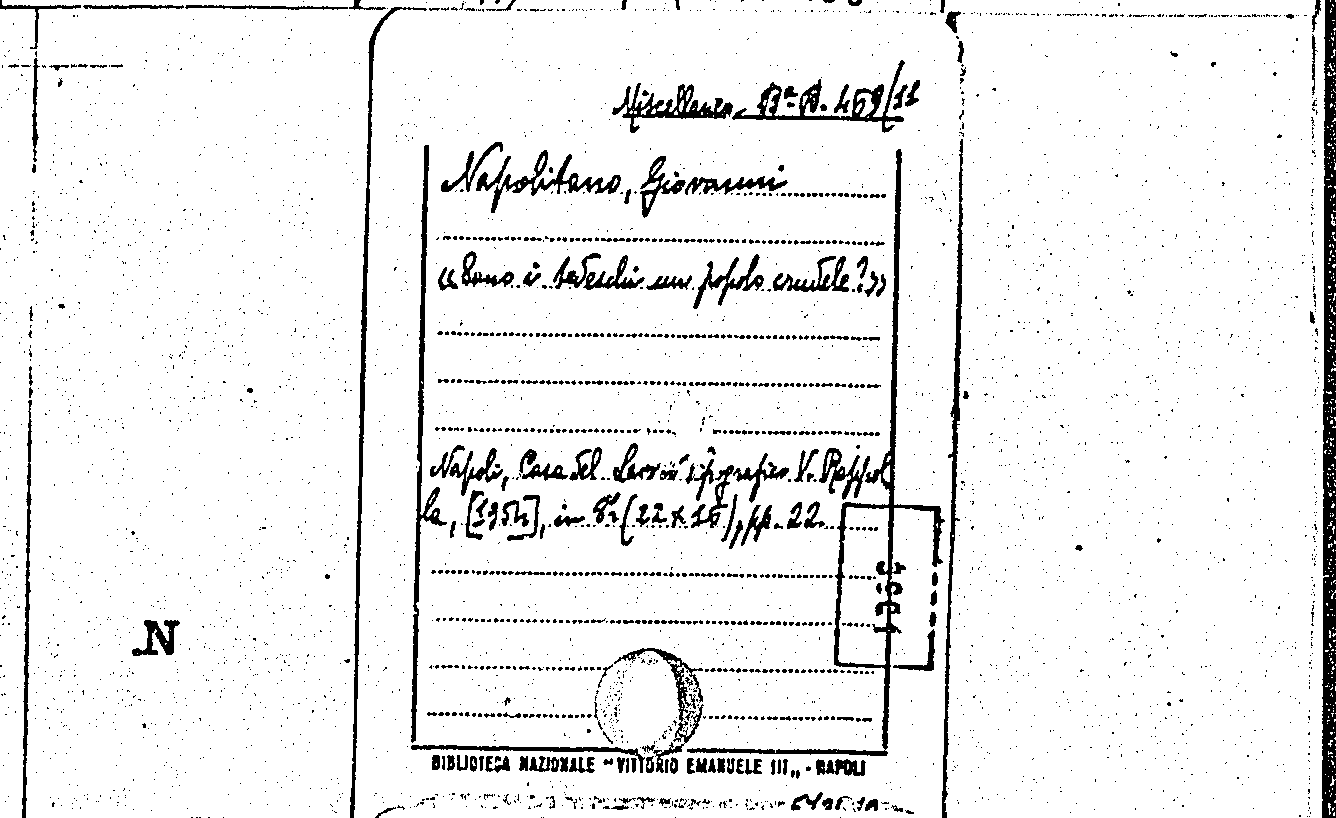 Miscellanea Bª B. 459/11
Napolitano, Giovanni
«Sono i tedeschi un popolo crudele?»
Napoli, Casa del Lavoro tipografico V. Raffol
la, [1954], in 8º (22 x 16), pp. 22.
N
BIBLIOTECA NAZIONALE "VITTORIO EMANUELE III„ - NAPOLI